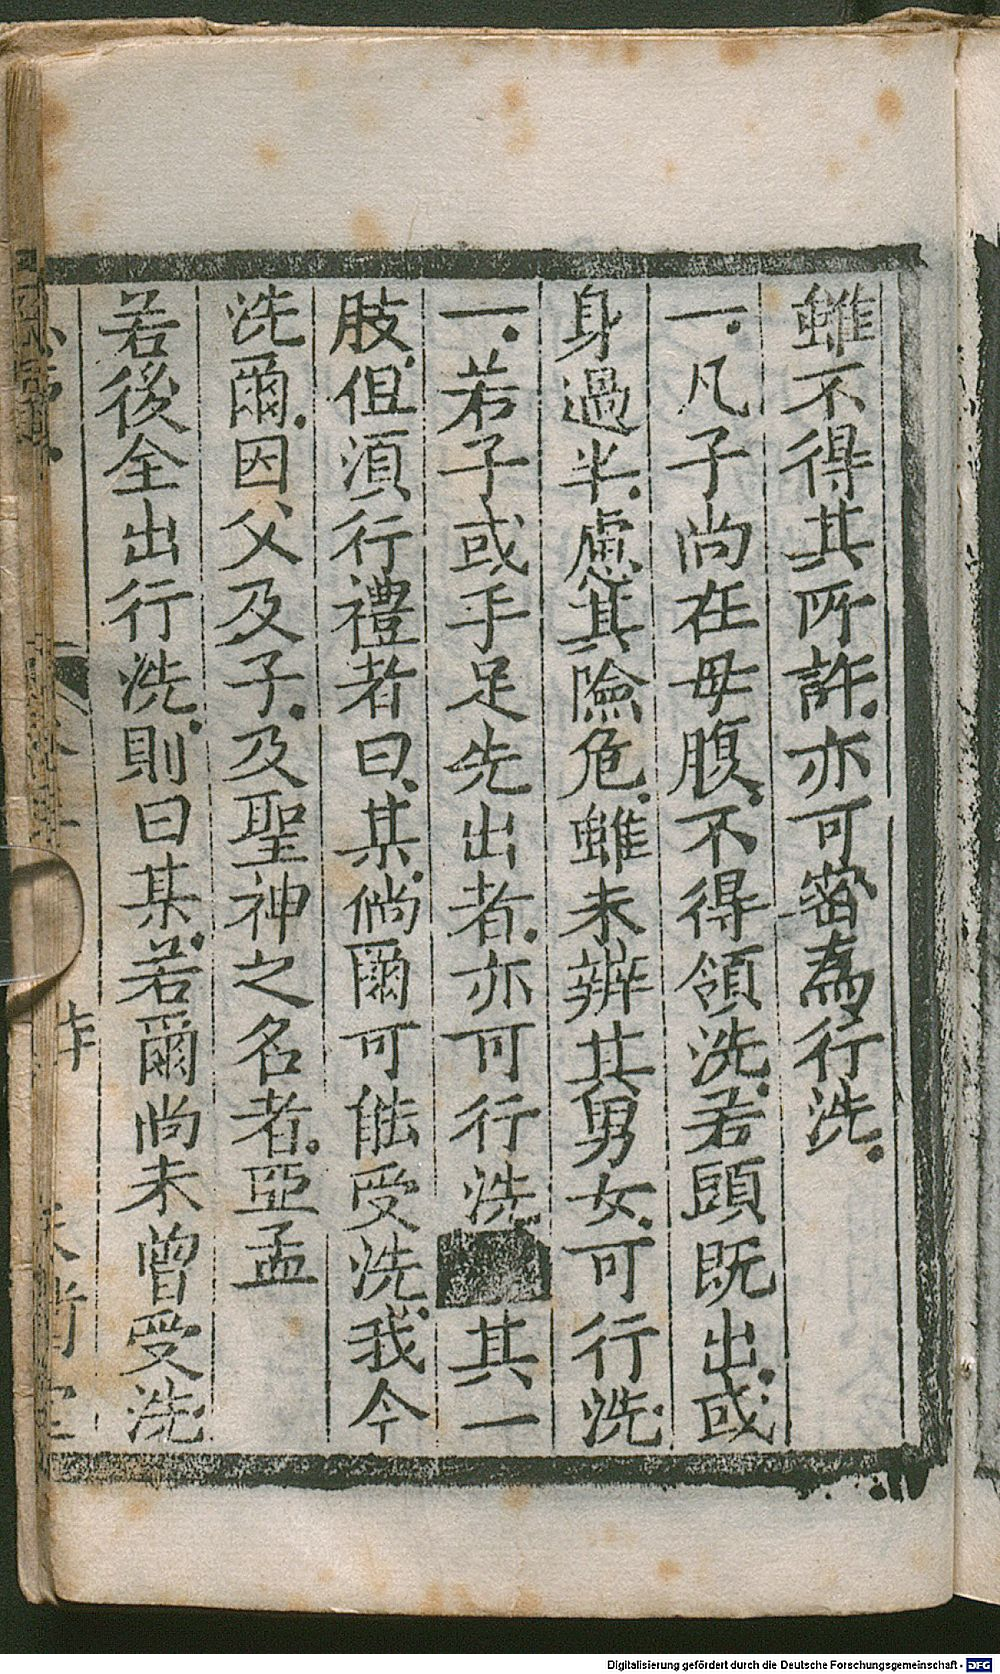 雖不得其所許.亦可密為行洗.
一.凡子尚在母腹.不得領洗.若頭既出.或
身過半.慮其險危.雖未辨其男女.可行洗.
一.若子或手足先出者.亦可行洗■其一
肢.但須行禮者曰.某.倘爾可能受洗.我今
洗爾.因父及子.及聖神之名者.亞孟
若後全出行洗.則曰某.若爾尚未曾受洗
Digitalisierung gefördert durch die Deutsche Forschungsgemeinschaft - DFG